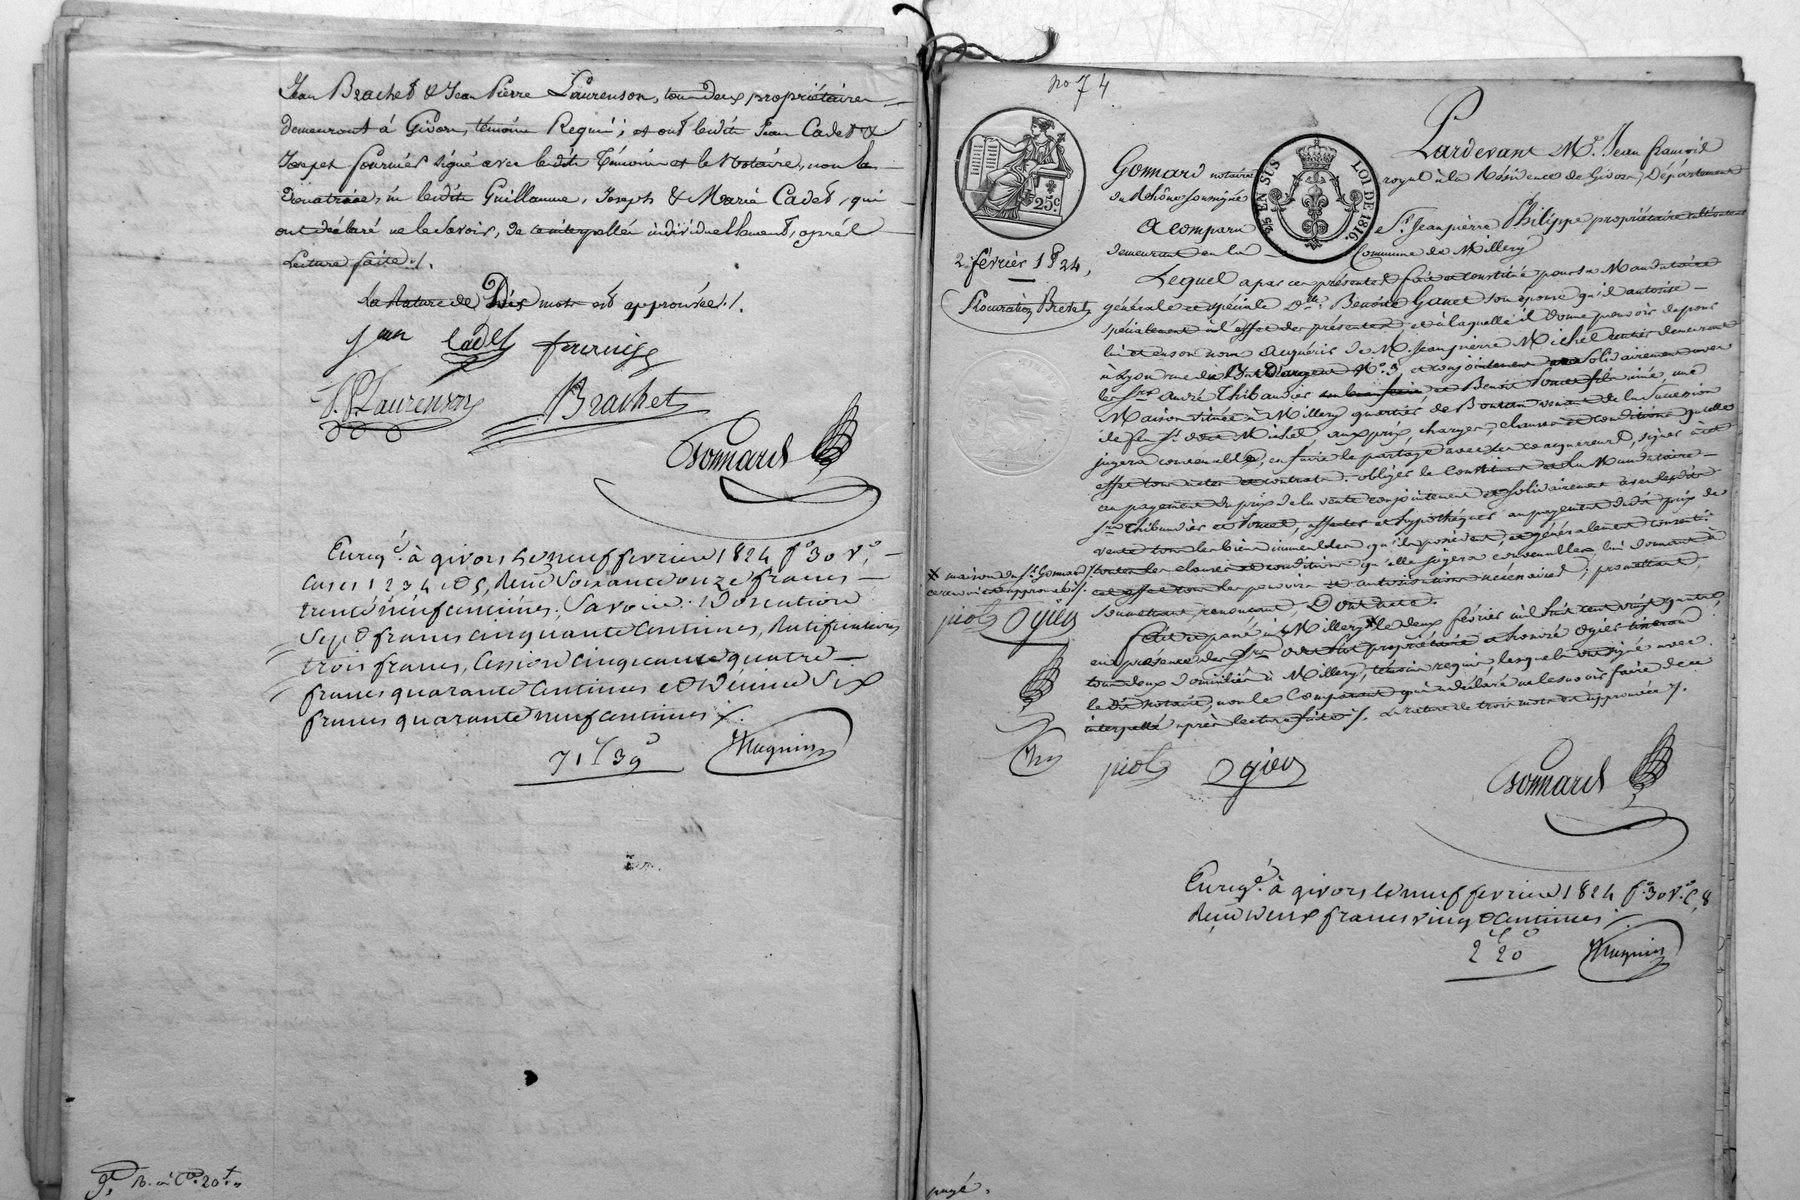 Jean Brachet & Jean Pierre Laurenson, tous deux propriétaires
demeurant à Givors, témoins Requis; et ont lesdits Jean Cadet &
Joseph fournier signé avec lesdits témoins et le Notaire, non les
Donatrices, ni lesdits Guillaume, Joseph & Marie Cadet, qui
ont déclaré ne le Savoir, de ce interpellés individuellement, après
Lecture faite ./.
La Rature de Dix mots est approuvée ./.
jean Cadet fournier
J. P. Laurenson Brachet
Gonnard
Enregé. à givors le neuf fevrier 1824 fo 30 Vo,
Cases 1 2 3 4 et 5, Reçu Soixante onze francs
trente neuf centimes; Savoir: Donation
Sept francs cinquante Centimes, Ratification
trois francs, Cession cinquante quatre
francs quarante Centimes et Dixme Six
francs quarante neuf centimes ./.
71 f 39 c
no 74
25 c
25 EN SUS LOI DE 1816.
2 février 1824,
Procuration Brevet
Pardevant Me. Jean françois
Gonnard notaire royal à la Résidence de Givors, Département
du Rhône soussigné
A comparu Sr. Jean pierre Philippe propriétaire cultivateur
demeurant en la Commune de Millery
Lequel a par ces présentes fait et constitué pour sa Mandataire
générale et spéciale Dlle. Benoite Ganet son épouse qu'il autorise
spécialement à l'effet des présentes, et à laquelle il donne pouvoir de pour
lui et en son nom acquérir de M. Jean pierre Michel demeurant
à Lyon rue No. 3, et conjointement solidairement avec
les Srs. André Thibaudier et Benoit Poncet fils ainé une
Maison située à Millery quartier de venant de la Succession
de feu Sr. Michel, aux prix, charges, clauses et conditions qu'elle
jugera convenables, en faire le partage avec les acquereurs, signer à cet
effet tous actes et contrats. obliger le Constituant et la Mandataire
au payement du prix de la vente conjointement et solidairement avec lesdits
Srs. Thibaudier et Poncet, affecter et hypothéquer au payement dudit prix de
vente tous les biens immeubles qu'ils possèdent, et généralement consentir
toutes les clauses et conditions qu'elle jugera convenables, lui donnant à
cet effet tous les pouvoirs et autorisations nécessaires; promettant,
Soumettant, renonçant, Dont acte.
x maison du Sr. Gonnard
ce renvoi est approuvé ./.
piot Ogier
Fait et passé à Millery x le deux février mil huit cent vingt quatre,
en présence des Srs. piot propriétaire et honoré Ogier
tous deux domiciliés à Millery, témoins requis, lesquels ont signé avec
le dit notaire, non le Comparant qui a déclaré ne le savoir faire de ce
interpellé après lecture faite ./. La rature de trois mots est approuvée ./.
piot Ogier
Gonnard
Enregé. à givors le neuf fevrier 1824 fo 30 Vo. C. 8
Reçu Deux francs vingt centimes ./.
2 f 20 c
payé.